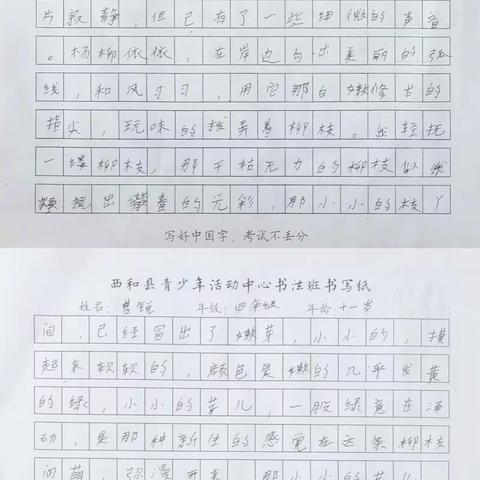 片寂静，但已有了一些细微的声音
。杨柳依依，在岸边勾出美丽的弧
线，和风习习，用它那白嫩修长的
指尖，玩味的拨弄着柳枝。我轻抚
一缕柳枝，那干枯无力的柳枝似
出 的光彩，那小小的枝丫
写好中国字，考试不丢分
西和县青少年活动中心书法班书写纸
姓名： 年级：四年级 年龄：十一岁
间，已经冒出了嫩芽，小小的，摸
起来软软的，颜色是嫩的几乎发黄
的绿，小小的芽儿，一股绿意在涌
动，是那种新生的感觉在这条柳枝
间萌，弥漫开来，那小小的芽儿